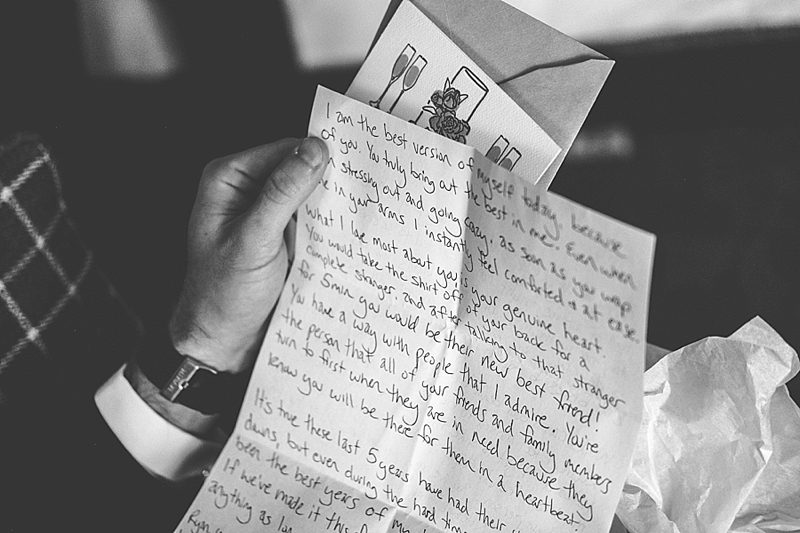 I am the best version of myself today because
of you. You truly bring out the best in me. Even when
stressing out and going crazy, as soon as you wrap
me in your arms I instantly feel comforted + at ease.
What I love most about you is your genuine heart.
You would take the shirt off of your back for a
complete stranger. and after talking to that stranger
for 5min you would be their new best friend!
You have a way with people that I admire. You're
the person that all of your friends and family members
turn to first when they are in need because they
know you will be there for them in a heartbeat.
It's true these last 5 years have had their
downs, but even during the hard
been the best years of my
If we've made it this
anything as
Ryan